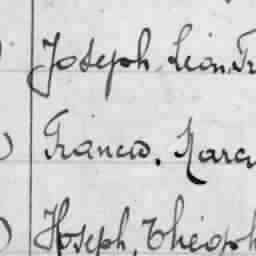 Joseph Léon Fr
Francis. Narci
Joseph, Théoph